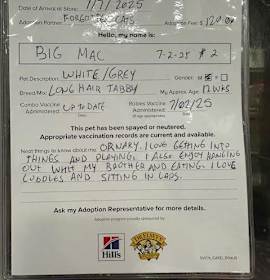 Date of Arrival at Store: 7/7/2025
Adoption Partner: FORGOTTEN CATS Adoption Fee: $ 120.00
Hello, my name is:
BIG MAC 7-2-25 # 2
Pet Description: WHITE/GREY Gender:
Breed Mix: LONG HAIR TABBY My Approx. Age: 12 WKS
Combo Vaccine Administered: UP TO DATE Rabies Vaccine Administered: 7/02/25
(if age appropriate)
This pet has been spayed or neutered.
Appropriate vaccination records are current and available.
Neat things to know about me: ORNARY. I LOVE GETTING INTO
THINGS AND PLAYING. I ALSO ENJOY HANGING
OUT WITH MY BROTHER AND EATING. I LOVE
CUDDLES AND SITTING IN LAPS.
Ask my Adoption Representative for more details.
Adoption program proudly sponsored by
Hill's